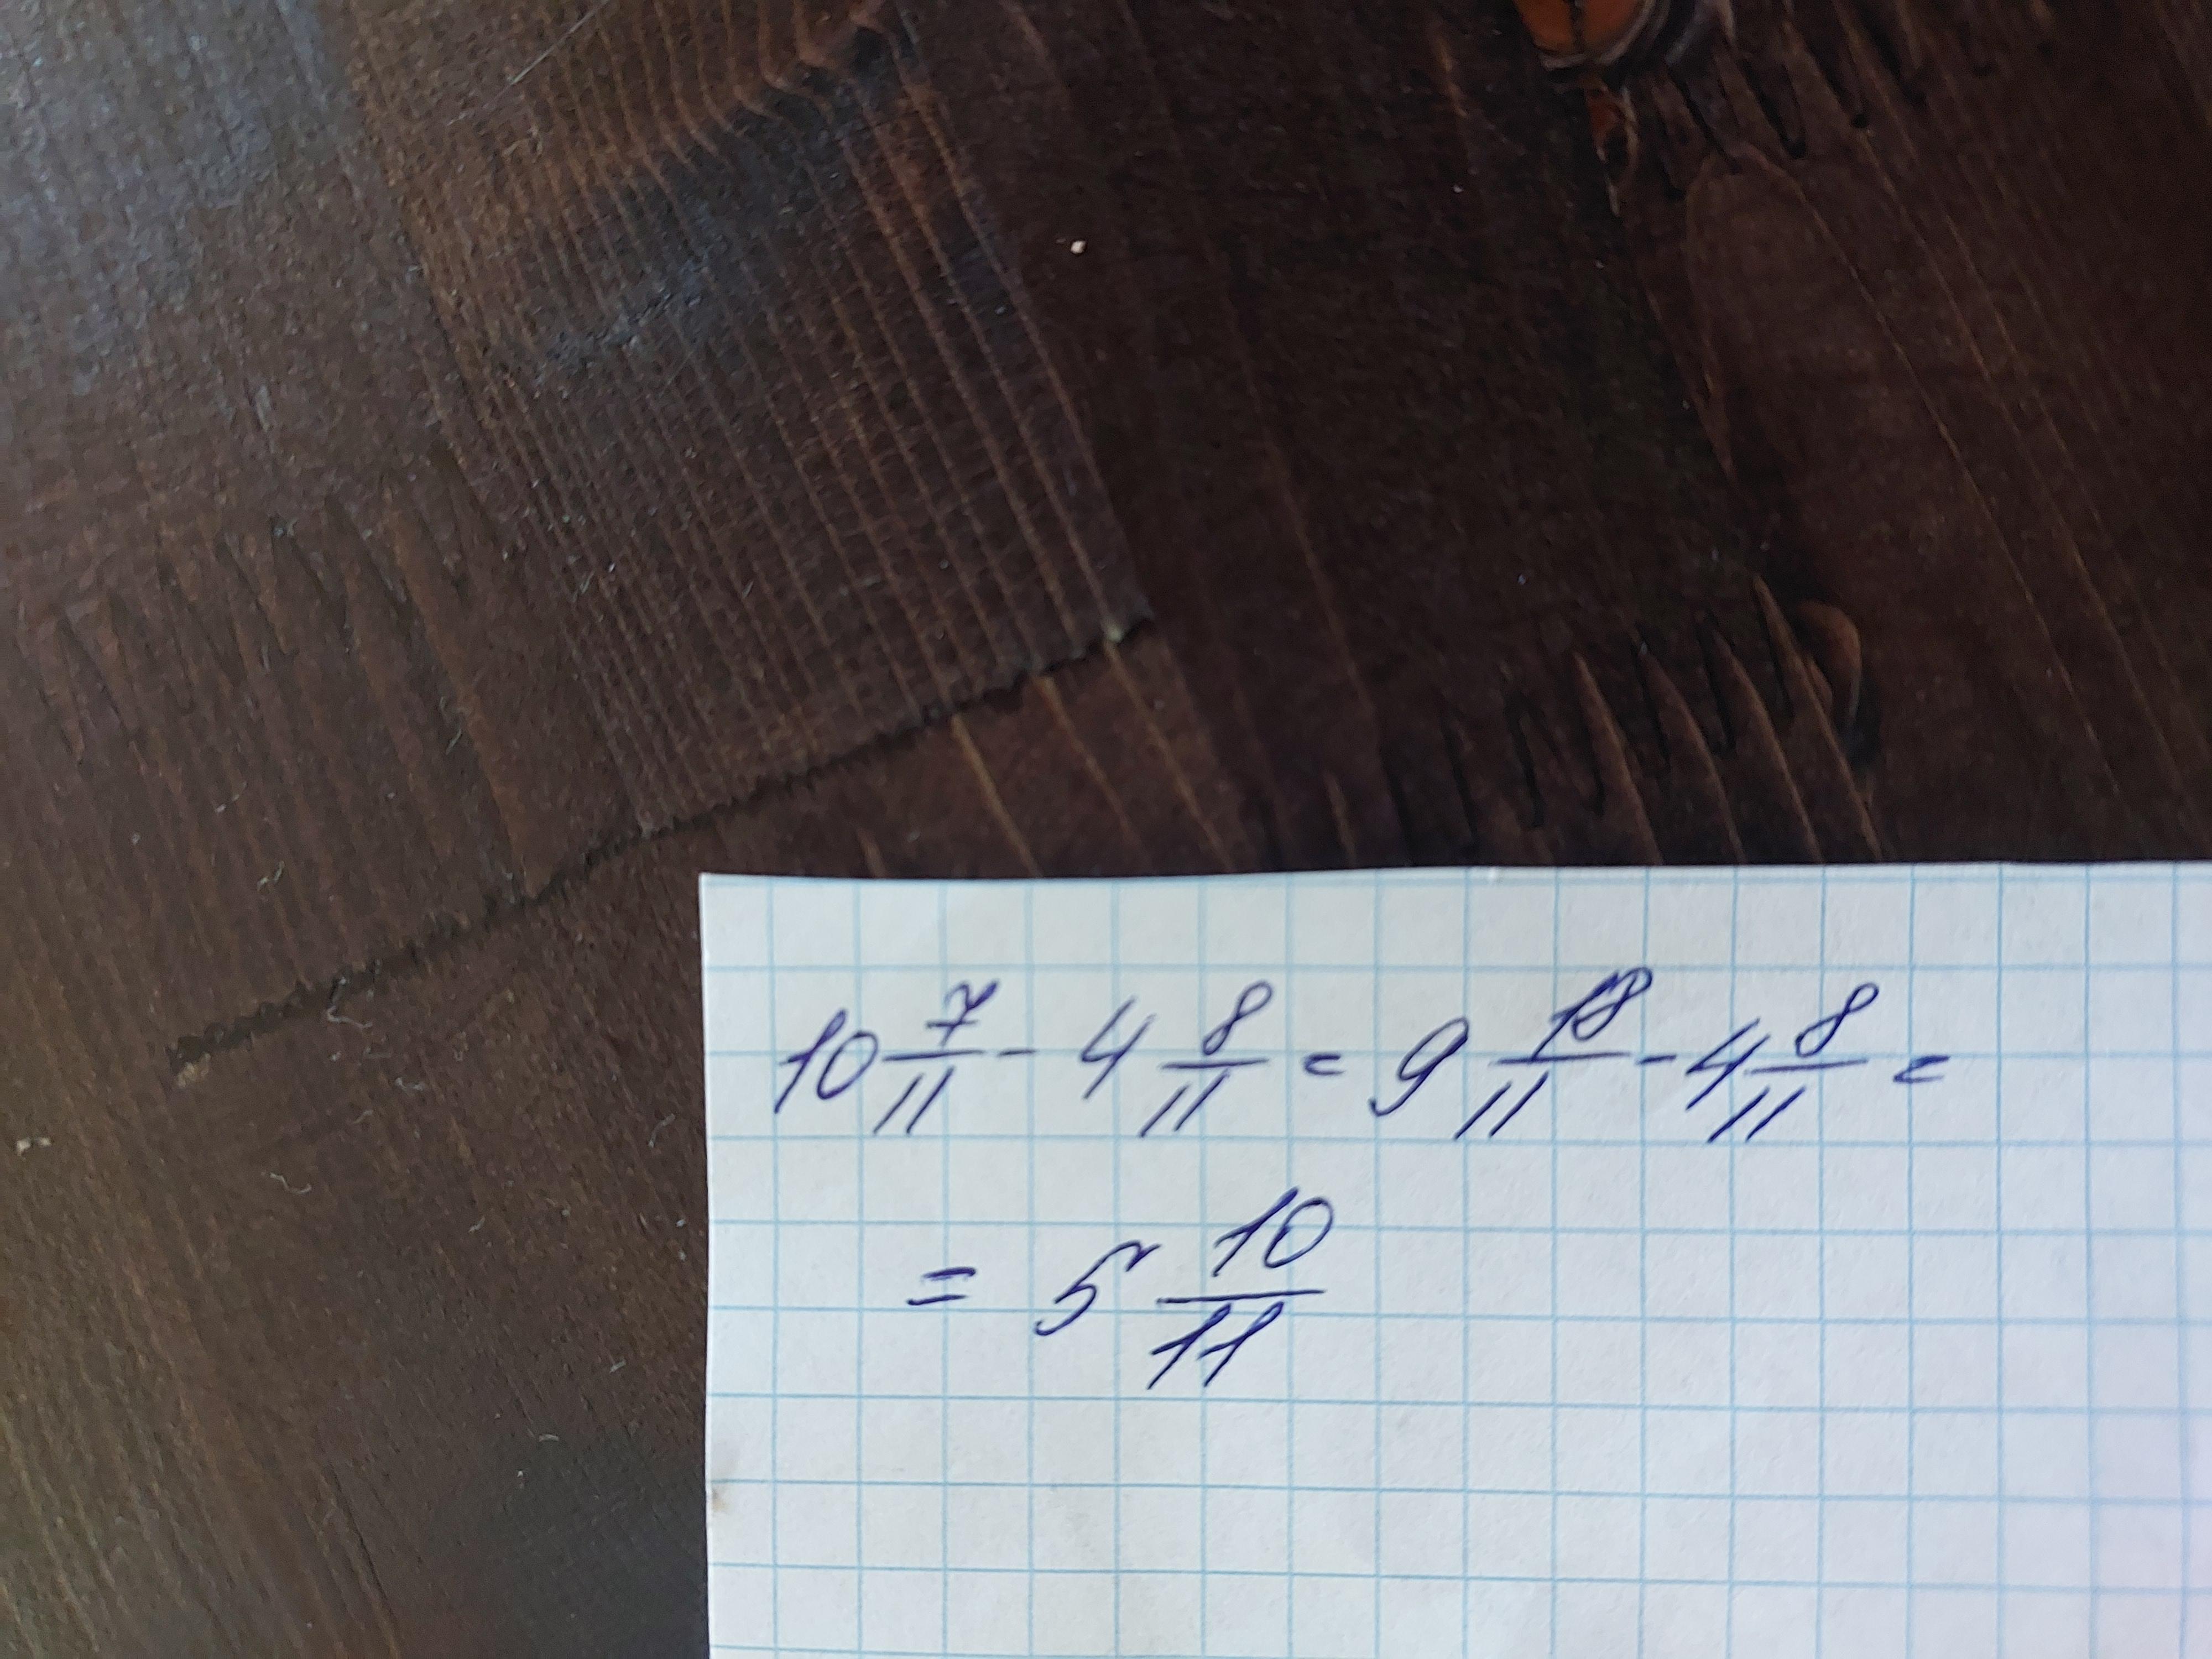 10 7/11 - 4 8/11 = 9 18/11 - 4 8/11 =
= 5 10/11